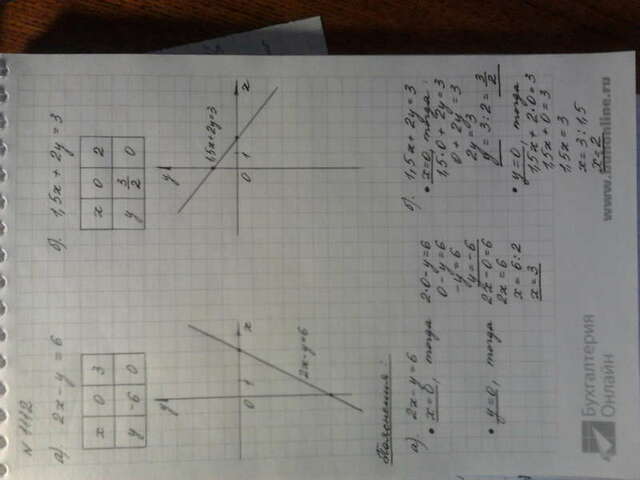 N 1112
а) 2x - y = 6
x 0 3
y -6 0
y
x
0 1
2x-y=6
б). 1,5x + 2y = 3
x 0 2
y 3/2 0
y
x
0 1
1,5x+2y=3
Пояснения:
а) 2x - y = 6
• x=0, тогда 2·0-y=6
0-y=6
-y=6
y=-6
• y=0, тогда 2x-0=6
2x=6
x=6:2
x=3
б). 1,5x + 2y = 3
• x=0, тогда:
1,5·0 + 2y = 3
0 + 2y = 3
2y = 3
y = 3:2 = 3/2
• y=0, тогда
1,5x + 2·0 = 3
1,5x + 0 = 3
1,5x = 3
x = 3:1,5
x = 2
Бухгалтерия
Онлайн